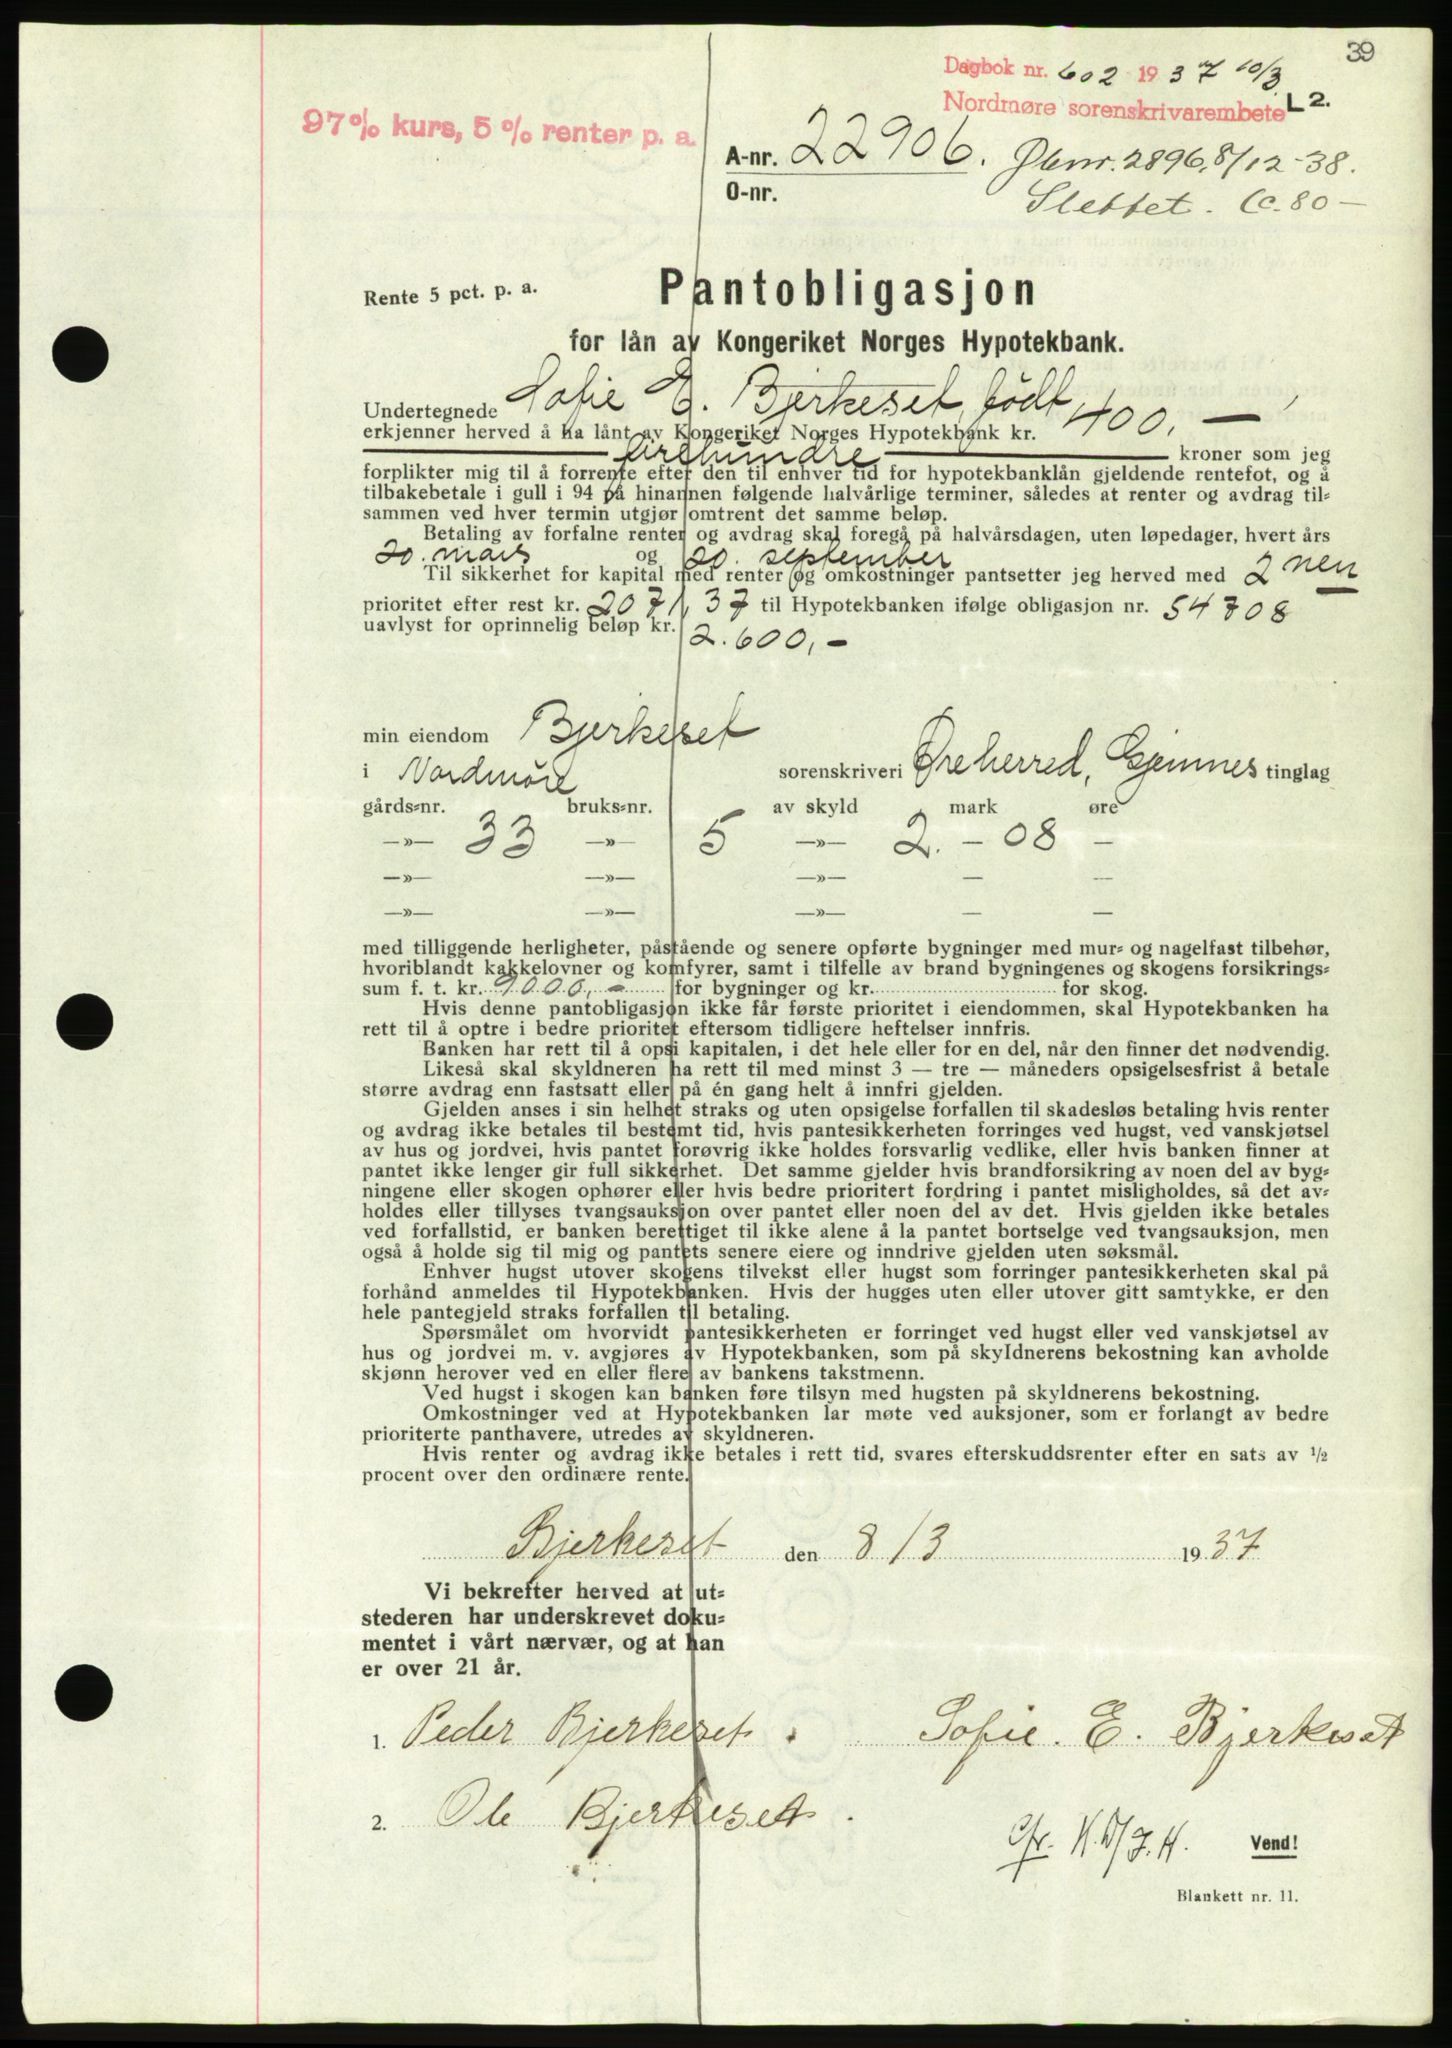 39
Dagbok nr. 602 1937 10/3
Nordmøre sorenskrivarembete L 2.
97 % kurs, 5 % renter p. a.
A-nr. 22906. Dbnr. 2896, 8/12-38.
O-nr. Slettet. 80 —
Rente 5 pct. p. a.
Pantobligasjon
for lån av Kongeriket Norges Hypotekbank.
Undertegnede Sofie E. Bjerkeset, født
erkjenner herved å ha lånt av Kongeriket Norges Hypotekbank kr. 400,—
firehundre kroner som jeg
forplikter mig til å forrente efter den til enhver tid for hypotekbanklån gjeldende rentefot, og å
tilbakebetale i gull i 94 på hinannen følgende halvårlige terminer, således at renter og avdrag til=
sammen ved hver termin utgjør omtrent det samme beløp.
Betaling av forfalne renter og avdrag skal foregå på halvårsdagen, uten løpedager, hvert års
20. mars og 20. september
Til sikkerhet for kapital med renter og omkostninger pantsetter jeg herved med 2 nen
prioritet efter rest kr. 2071,37 til Hypotekbanken ifølge obligasjon nr. 54708
uavlyst for oprinnelig beløp kr. 2.600,—
min eiendom Bjerkeset
i Nordmøre sorenskriveri Øre herred, Gjemnes tinglag
gårds=nr. bruks=nr. av skyld mark øre
—»— 33 —»— 5 —»— 2. — 08 —
—»— —»— —»— — —
—»— —»— —»— — —
med tilliggende herligheter, påstående og senere opførte bygninger med mur= og nagelfast tilbehør,
hvoriblandt kakkelovner og komfyrer, samt i tilfelle av brand bygningenes og skogens forsikrings=
sum f. t. kr. 9000,— for bygninger og kr. for skog.
Hvis denne pantobligasjon ikke får første prioritet i eiendommen, skal Hypotekbanken ha
rett til å optre i bedre prioritet eftersom tidligere heftelser innfris.
Banken har rett til å opsi kapitalen, i det hele eller for en del, når den finner det nødvendig.
Likeså skal skyldneren ha rett til med minst 3 — tre — måneders opsigelsesfrist å betale
større avdrag enn fastsatt eller på én gang helt å innfri gjelden.
Gjelden anses i sin helhet straks og uten opsigelse forfallen til skadesløs betaling hvis renter
og avdrag ikke betales til bestemt tid, hvis pantesikkerheten forringes ved hugst, ved vanskjøtsel
av hus og jordvei, hvis pantet forøvrig ikke holdes forsvarlig vedlike, eller hvis banken finner at
pantet ikke lenger gir full sikkerhet. Det samme gjelder hvis brandforsikring av noen del av byg=
ningene eller skogen ophører eller hvis bedre prioritert fordring i pantet misligholdes, så det av=
holdes eller tillyses tvangsauksjon over pantet eller noen del av det. Hvis gjelden ikke betales
ved forfallstid, er banken berettiget til ikke alene å la pantet bortselge ved tvangsauksjon, men
også å holde sig til mig og pantets senere eiere og inndrive gjelden uten søksmål.
Enhver hugst utover skogens tilvekst eller hugst som forringer pantesikkerheten skal på
forhånd anmeldes til Hypotekbanken. Hvis der hugges uten eller utover gitt samtykke, er den
hele pantegjeld straks forfallen til betaling.
Spørsmålet om hvorvidt pantesikkerheten er forringet ved hugst eller ved vanskjøtsel av
hus og jordvei m. v. avgjøres av Hypotekbanken, som på skyldnerens bekostning kan avholde
skjønn herover ved en eller flere av bankens takstmenn.
Ved hugst i skogen kan banken føre tilsyn med hugsten på skyldnerens bekostning.
Omkostninger ved at Hypotekbanken lar møte ved auksjoner, som er forlangt av bedre
prioriterte panthavere, utredes av skyldneren.
Hvis renter og avdrag ikke betales i rett tid, svares efterskuddsrenter efter en sats av ½
procent over den ordinære rente.
Bjerkeset den 8/3 1937
Vi bekrefter herved at ut=
stederen har underskrevet doku=
mentet i vårt nærvær, og at han
er over 21 år.
1. Peder Bjerkeset. Sofie. E. Bjerkeset
2. Ole Bjerkeset.
Vend!
Blankett nr. 11.